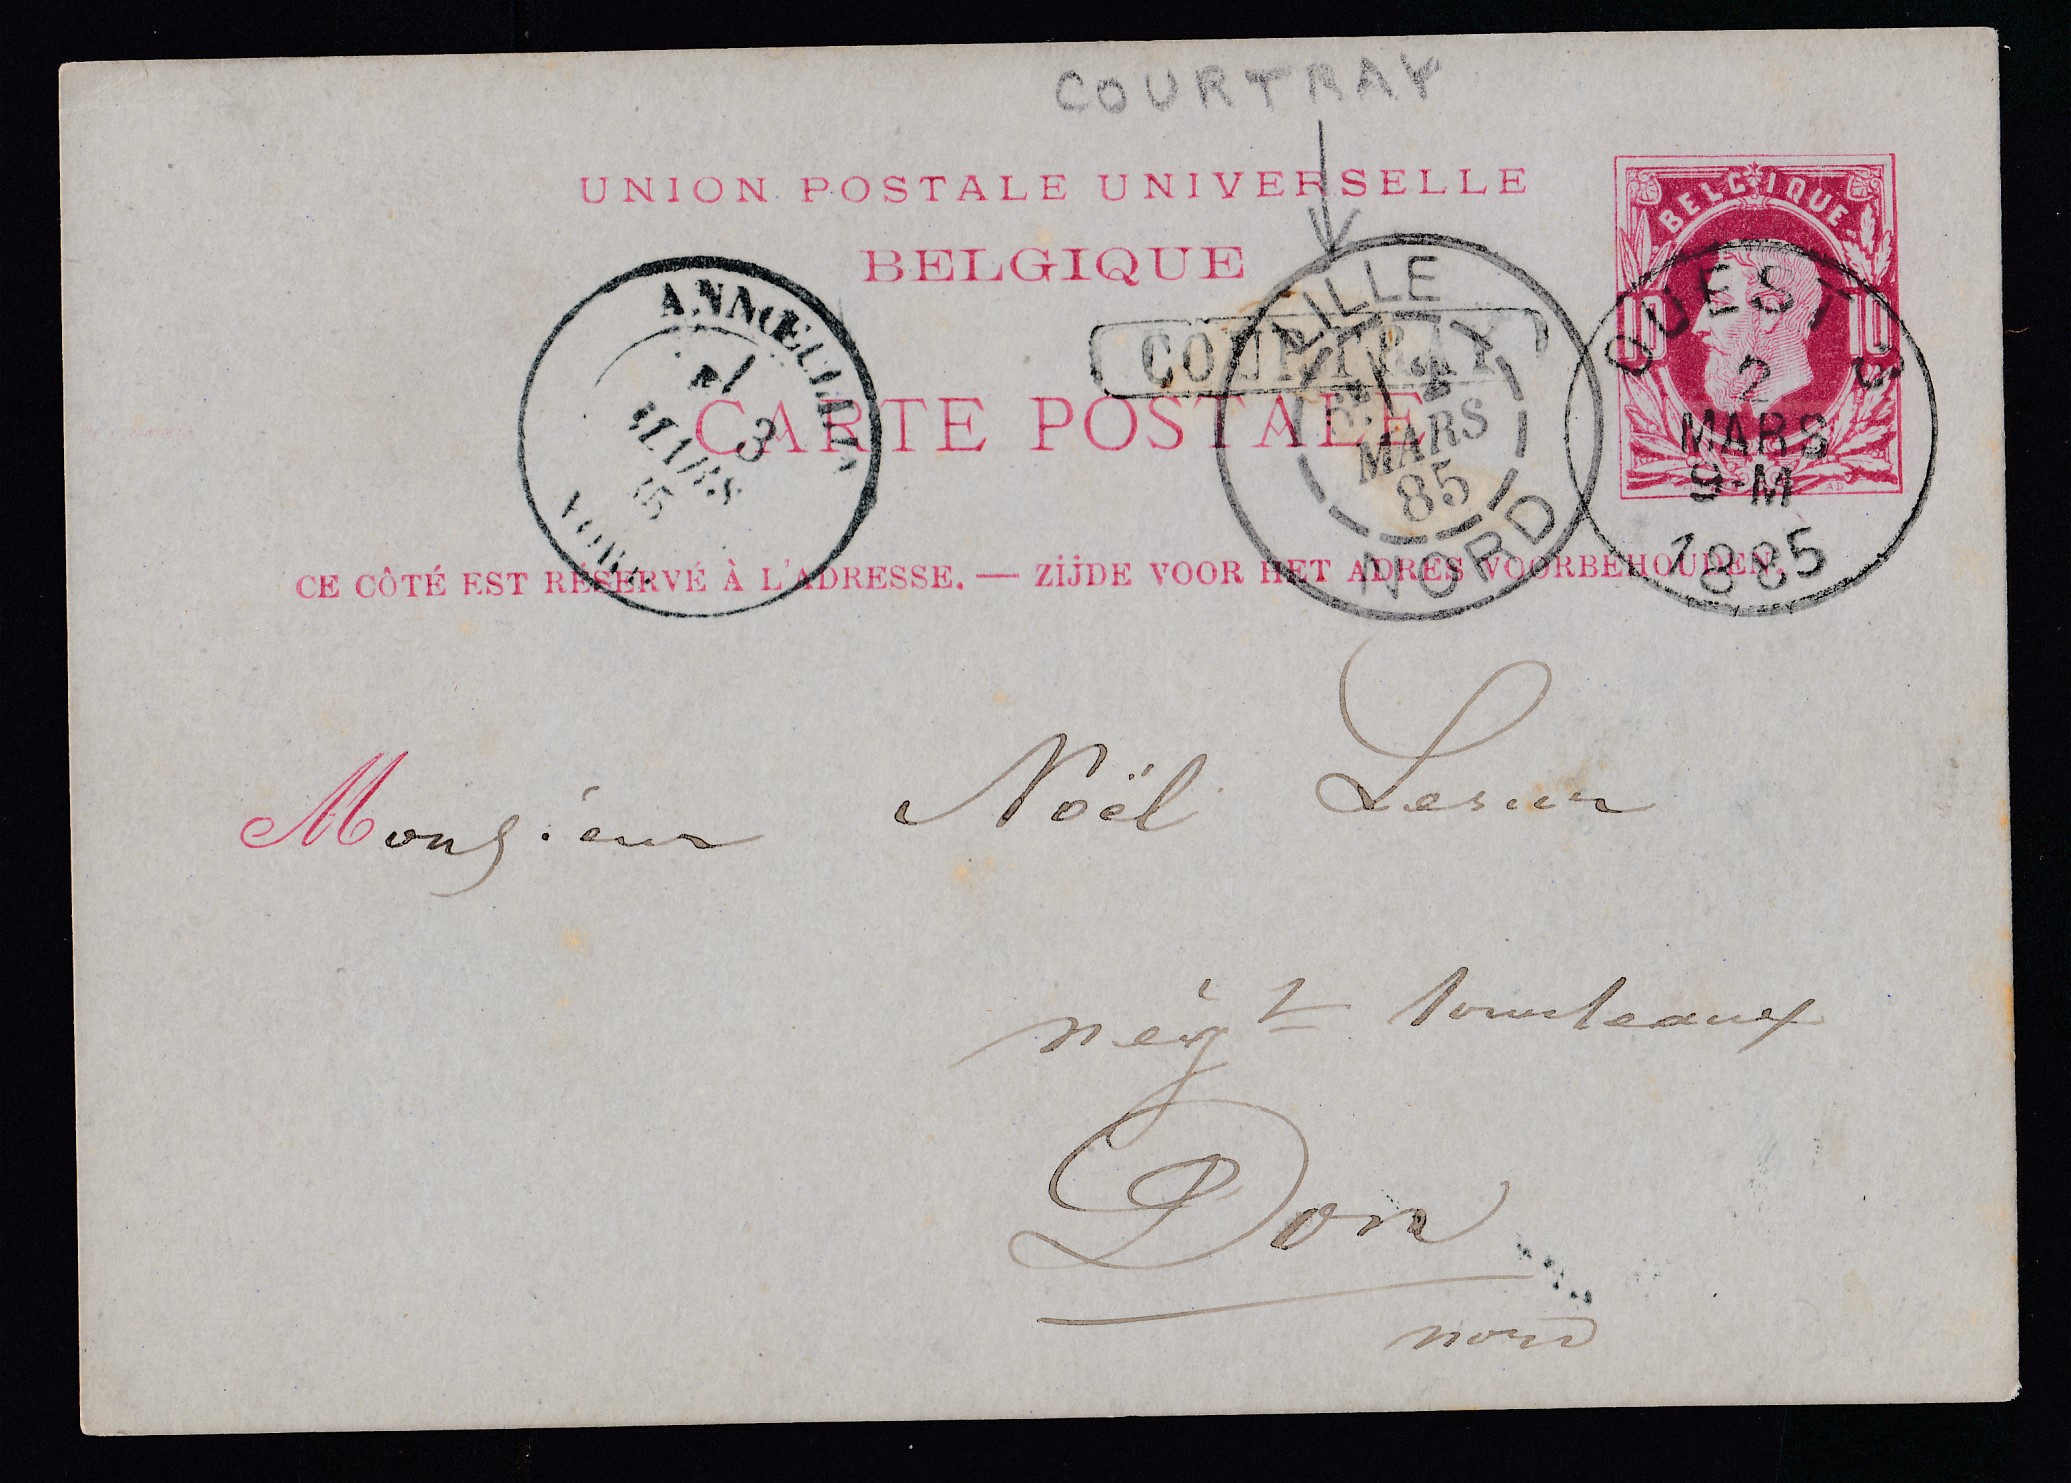 COURTRAY
UNION POSTALE UNIVERSELLE
BELGIQUE
BELGIQUE
10 10
COURTRAY
CARTE POSTALE
ANNŒULLIN
3
MARS
85
NORD
LILLE
2
MARS
85
NORD
OUEST 3
2
MARS
9-M
1885
CE CÔTÉ EST RÉSERVÉ À L'ADRESSE. — ZIJDE VOOR HET ADRES VOORBEHOUDEN.
Monsieur Noël Lesur
nég.t tourteaux
Don
nord